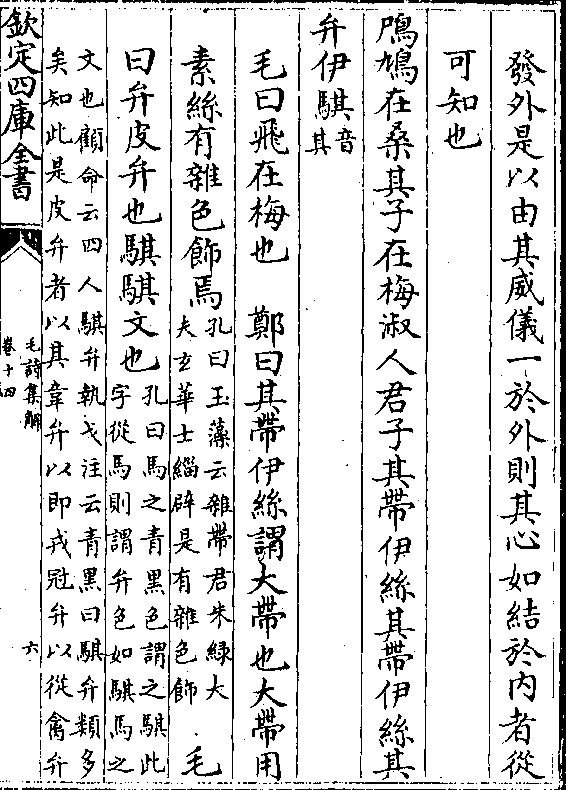 發外是以由其威儀一於外則其心如結於内者從
可知也
鳲鳩在桑其子在梅淑人君子其帶伊絲其帶伊絲其
弁伊騏音其
毛曰飛在梅也　鄭曰其帶伊絲謂大帶也大帶用
素絲有雜色飾焉孔曰玉藻云雜帶君朱緑大夫玄華士緇辟是有雜色飾　毛
曰弁皮弁也騏騏文也孔曰馬之青黑色謂之騏此字從馬則謂弁色如騏馬之
文也顧命云四人騏弁執戈注云青黑曰騏弁類多
矣知此是皮弁者以其韋弁以即戎冠弁以從禽弁
欽定四庫全書
毛詩集解
卷十四
六